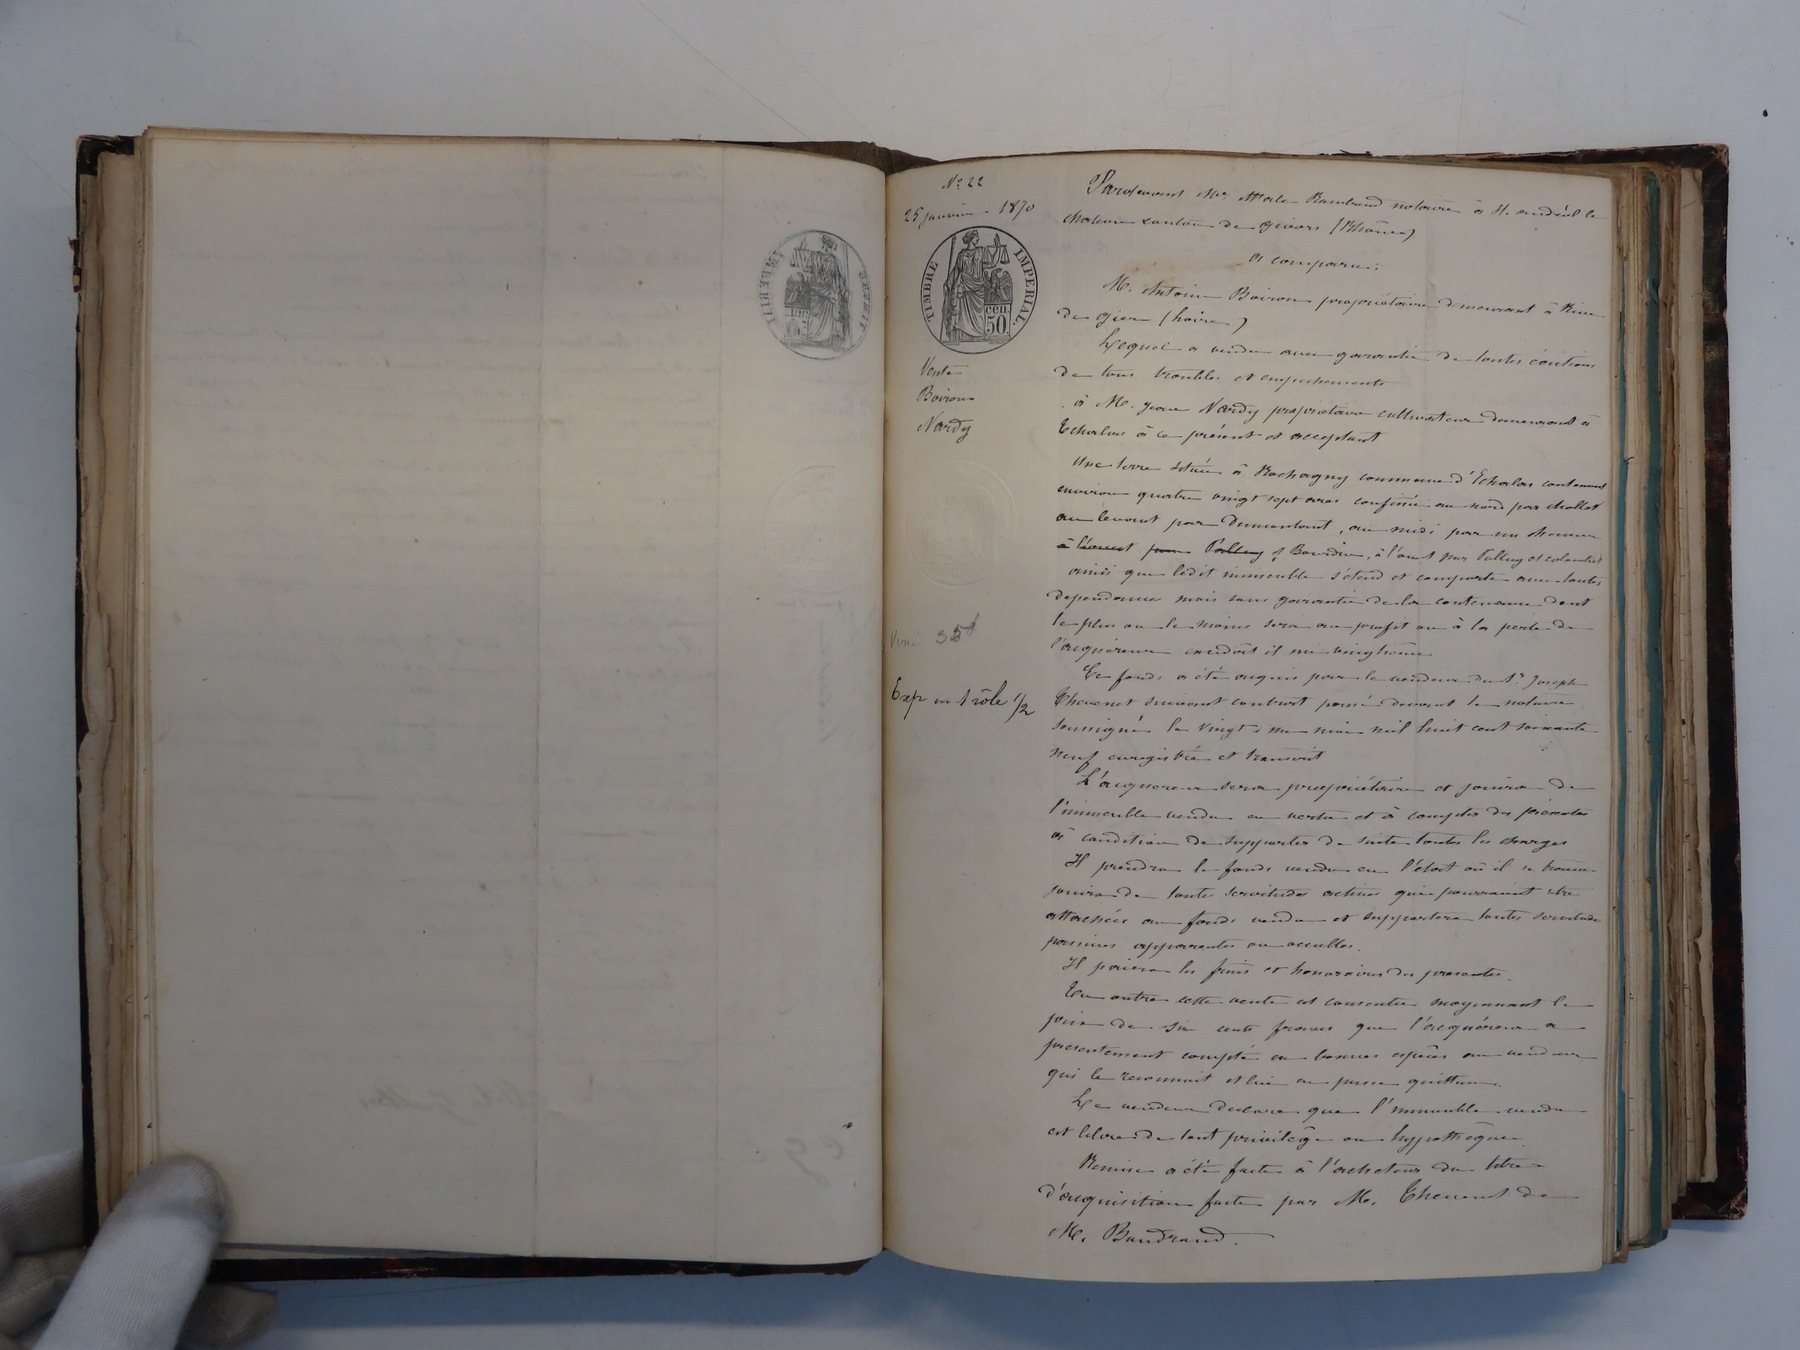 Nº 22
25 janvier 1870
TIMBRE IMPERIAL
50 cen.
Vente
Boiron
Nardy
35f
Exp en 1 rôle 1/2
Pardevant Me notaire à St andéol le
chateau canton de givors (Rhône)
a comparu :
M. Antoine Boiron propriétaire demeurant à Rive
de gier (Loire)
Lequel a vendu avec garantie de toutes évictions
de tous troubles et empechements
à M. Jean Nardy propriétaire cultivateur demeurant à
Echalas à ce présent et acceptant
Une terre située à Rochagny commune d'Echalas contenant
environ quatre vingt sept ares confinée au nord par chollet
au levant par Dumontant, au midi par un chemin
à l'ouest par Palluy et Bourdin, à l'ouest par Palluy et
ainsi que ledit immeuble s'étend et comporte avec toutes
dependances mais sans garantie de la contenance dont
le plus ou le moins sera au profit ou à la perte de
l'acquéreur excédât il un vingtième
Ce fonds a été acquis par le vendeur du Sr Joseph
Thevenet suivant contrat passé devant le notaire
soussigné le vingt un mai mil huit cent soixante
neuf enregistré et transcrit
L'acquereur sera propriétaire et jouira de
l'immeuble vendu en vertu et à compter des présentes
à condition de supporter de suite toutes les charges
Il prendra le fonds vendu en l'état où il se trouve
jouira de toutes servitudes actives qui pourraient être
attachées au fonds vendu et supportera toutes servitudes
passives apparentes ou occultes.
Il paiera les frais et honoraires des presentes.
En outre cette vente est consentie moyennant le
prix de six cents francs que l'acquéreur a
presentement compté en bonnes espèces au vendeur
qui le reconnait et lui en passe quittance.
Le vendeur declare que l'immeuble vendu
est libre de tout privilège ou hypothèque
Remise a été faite à l'acheteur du titre
d'acquisition faite par M. Thevenet de
M. Baudrand.